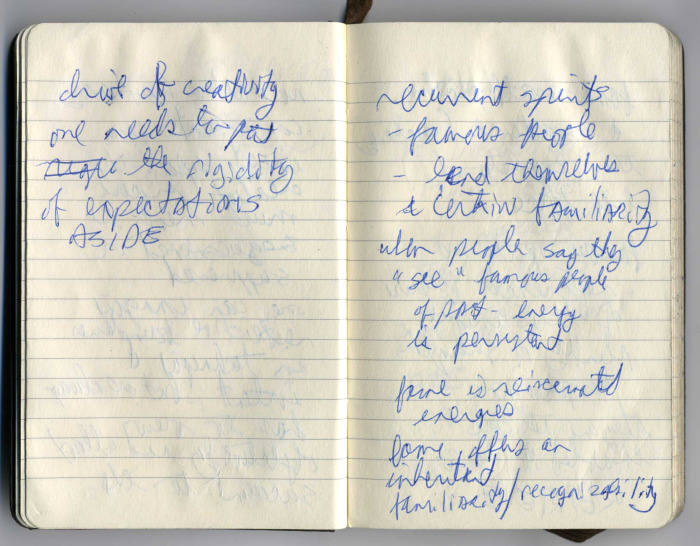 of creativity
one needs to put
the rigidity
of expectations
ASIDE
recurrent spirits
- famous people
- lend themselves
a certain familiarity
when people say they
"see" famous people
of past - energy
is persistent
fame is reincarnated
energies
offers an
inherited
familiarity/recognizability